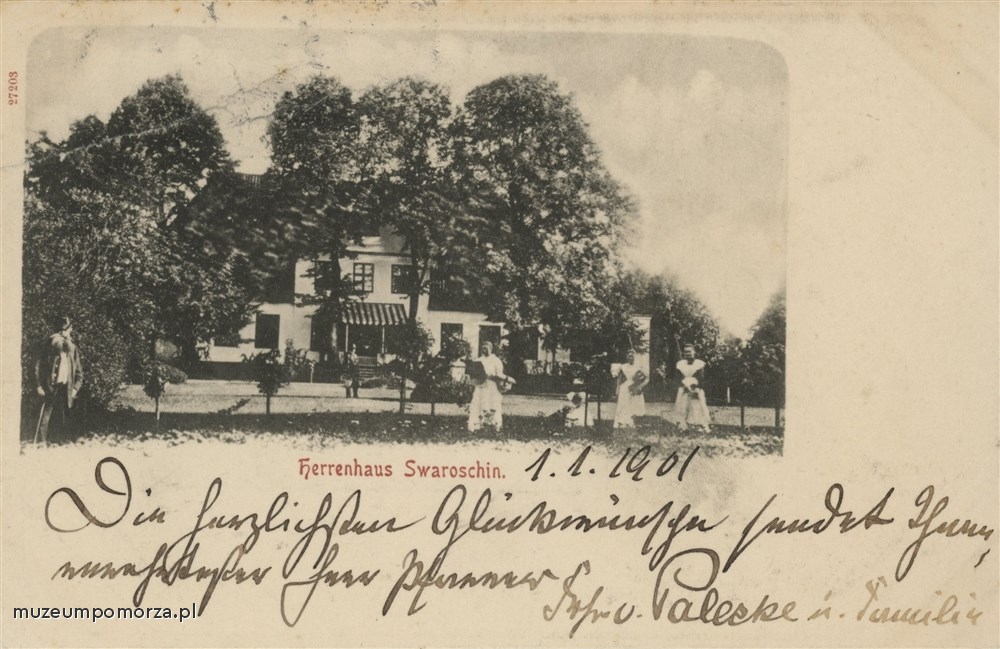 27203
Herrenhaus Swaroschin. 1.1.1901
Die herzlichsten Glückwünsche sendet Ihnen,
verehrtester Herr Pfarrer
Frhr v. Paleske u. Familie
muzeumpomorza.pl